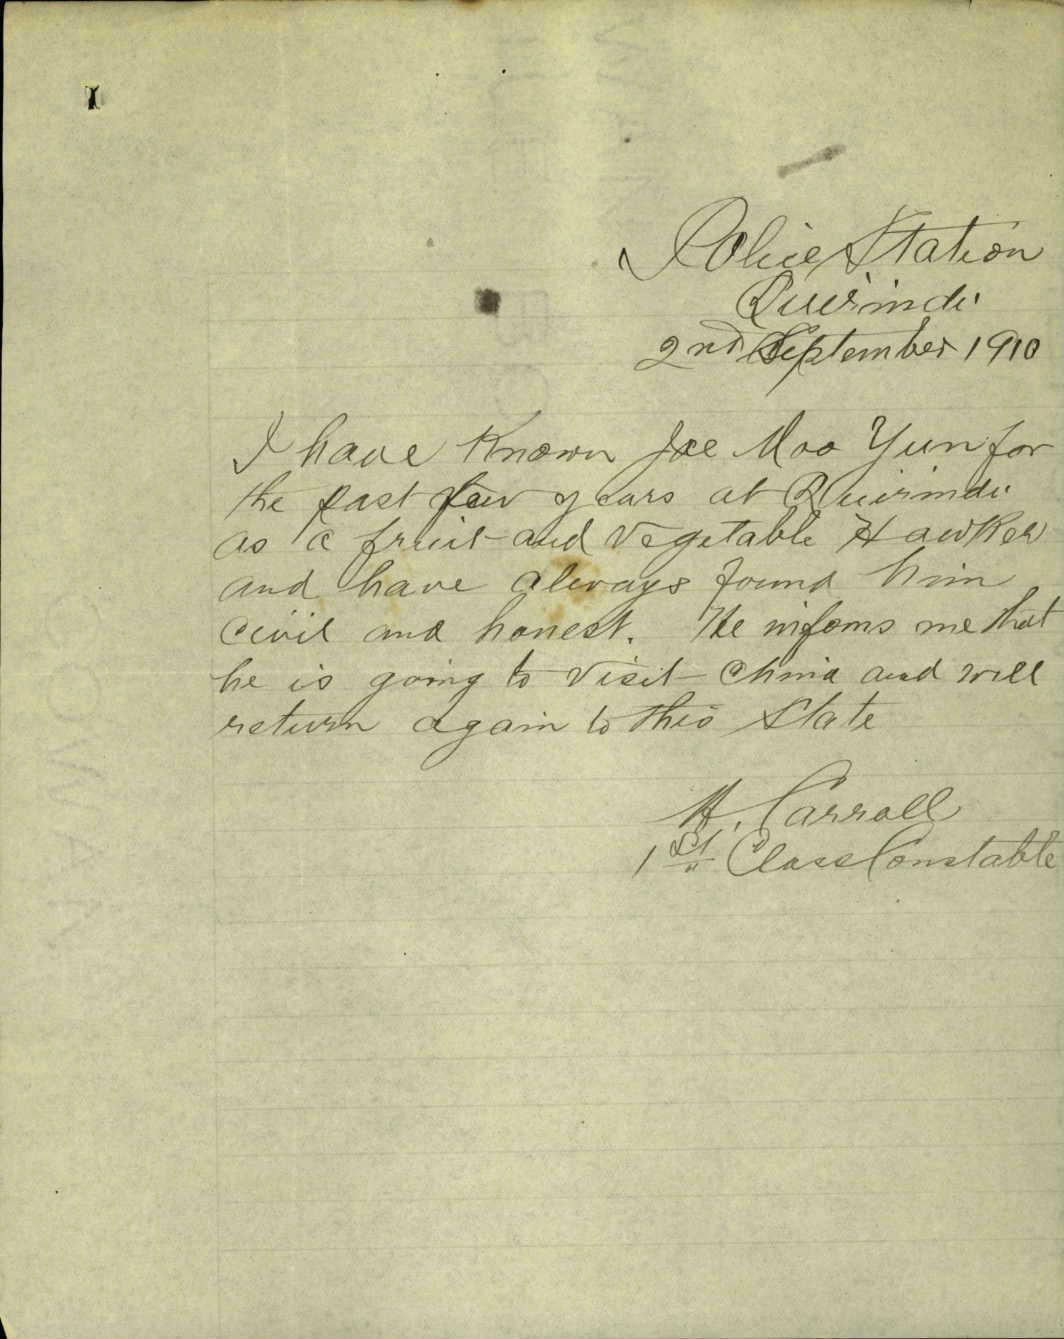 Police Station
Quirindi
2nd September 1910
I have Known Joe Moo Yun for
the past few years at Quirindi
as a fruit and Vegetable Hawker
and have always found him
civil and honest. He infoms me that
he is going to visit China and will
return again to this State
H. Carroll
1st Class Constable